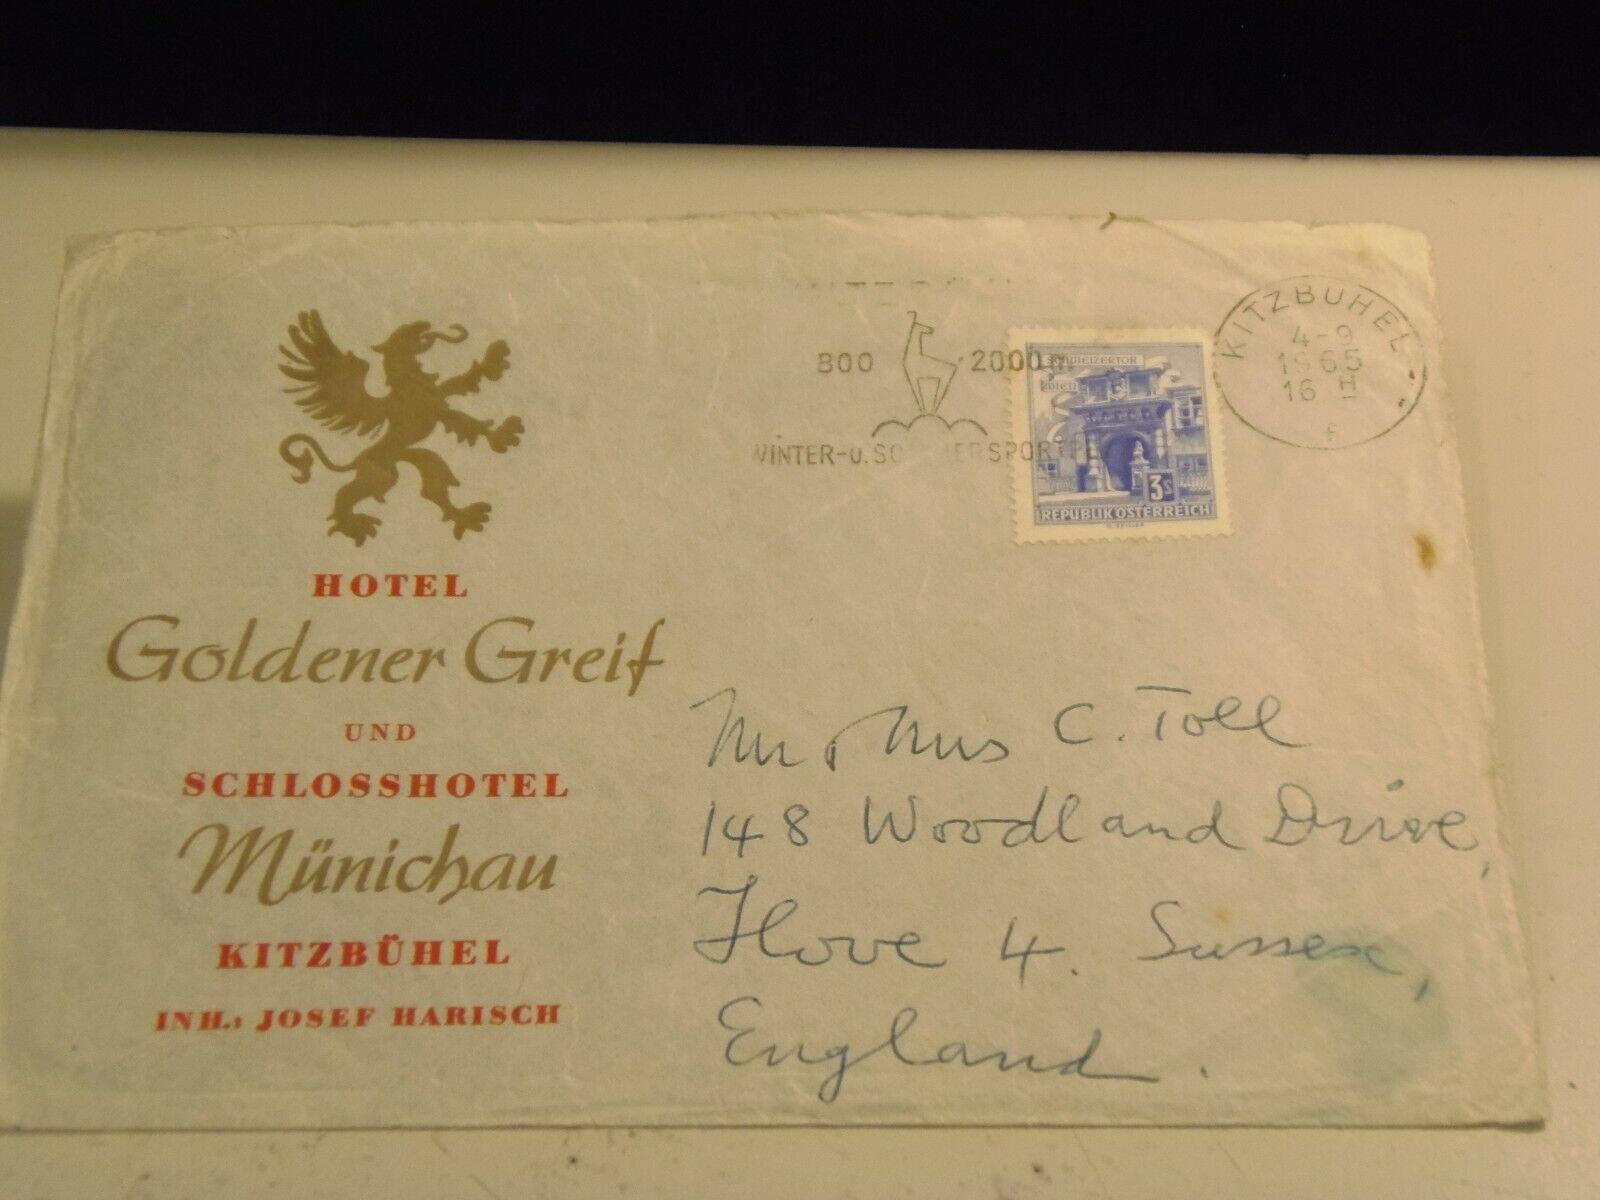 HOTEL
Goldener Greif
UND
SCHLOSSHOTEL
Münichau
KITZBÜHEL
INH.: JOSEF HARISCH
800 2000 m
WINTER-U. SOMMERSPORT
SCHWEIZERTOR
WIEN
3S
REPUBLIK ÖSTERREICH
KITZBÜHEL
4-9
1965
16 H
f
Mr & Mrs C. Toll
148 Woodland Drive,
Hove 4. Sussex,
England.